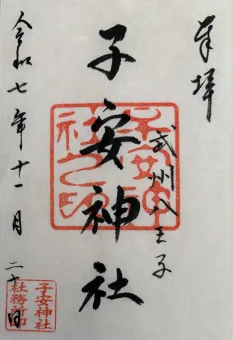 奉拝
武州八王子
子安神社
子安神社之印
令和七年十一月二十日
子安神社
社務所印